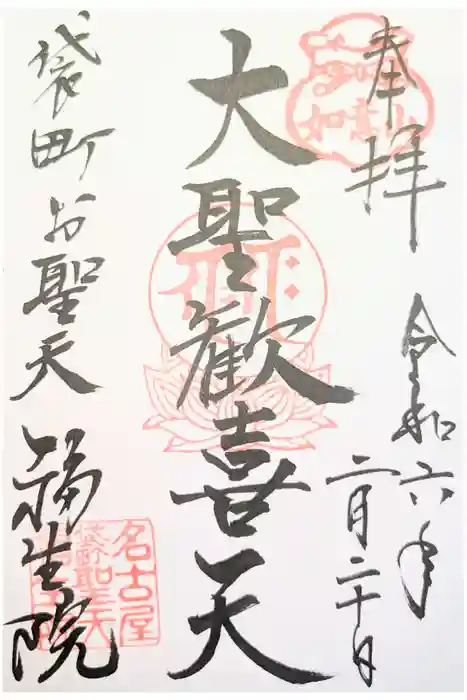 奉拝
令和六年
二月二十日
如意山
大聖歓喜天
袋町お聖天
福生院
名古屋
袋町聖天